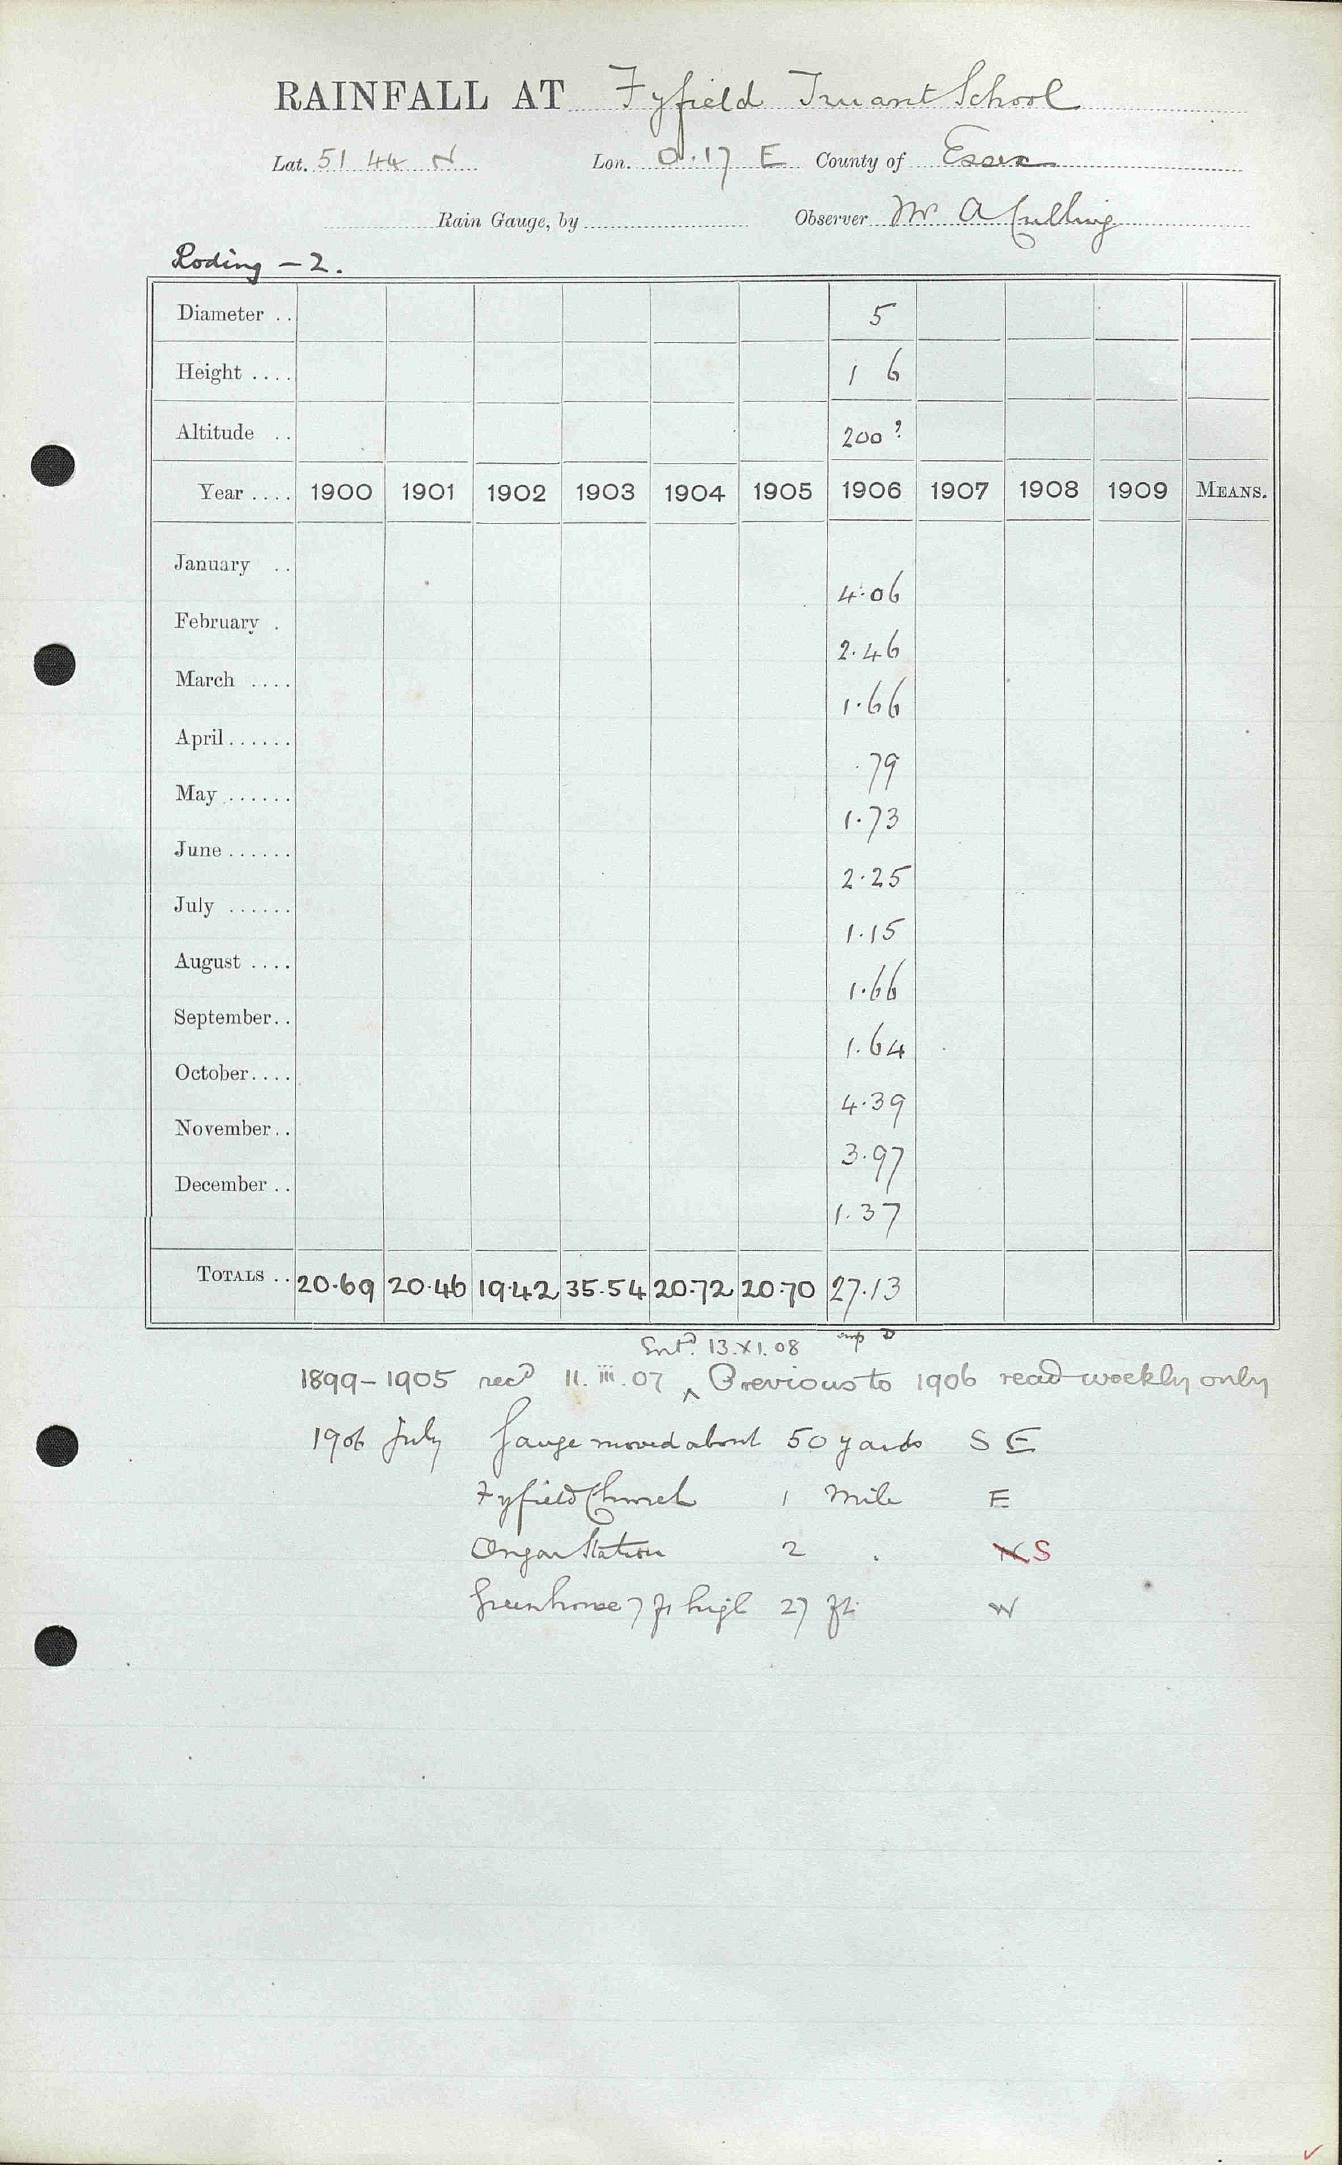 RAINFALL AT Fyfield Truant School
Lat. 51 44 N Lon. 0.17 E County of Essex
Rain Gauge, by Observer Mr A Culling
Roding - 2.
Diameter .. 5
Height .... 1 6
Altitude .. 200?
Year .... 1900 1901 1902 1903 1904 1905 1906 1907 1908 1909 MEANS.
January .. 4.06
February . 2.46
March .... 1.66
April...... .79
May ...... 1.73
June ...... 2.25
July ...... 1.15
August .... 1.66
September.. 1.64
October.... 4.39
November.. 3.97
December .. 1.37
TOTALS .. 20.69 20.46 19.42 35.54 20.72 20.70 27.13
Entd. 13.XI.08
1899-1905 recd 11.iii.07 Previous to 1906 read weekly only
1906 July Gauge moved about 50 yards S E
Fyfield Church 1 Mile E
Ongar Station 2 . N S
Greenhouse 7 ft high 27 ft. W